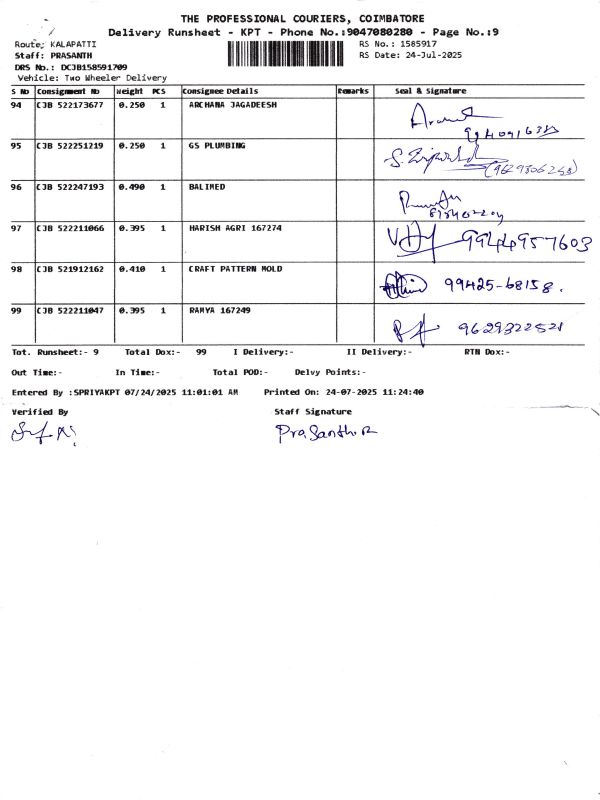 THE PROFESSIONAL COURIERS, COIMBATORE
Delivery Runsheet - KPT - Phone No.:9047080280 - Page No.:9
Route: KALAPATTI RS No.: 1585917
Staff: PRASANTH RS Date: 24-Jul-2025
DRS No.: DCJB158591709
Vehicle: Two Wheeler Delivery
S No Consignment No Weight PCS Consignee Details Remarks Seal & Signature
94 CJB 522173677 0.250 1 ARCHANA JAGADEESH
95 CJB 522251219 0.250 1 GS PLUMBING
96 CJB 522247193 0.490 1 BALIMED
97 CJB 522211066 0.395 1 HARISH AGRI 167274 9944957603
98 CJB 521912162 0.410 1 CRAFT PATTERN MOLD 99425-68158.
99 CJB 522211047 0.395 1 RAMYA 167249 9629322521
Tot. Runsheet:- 9 Total Dox:- 99 I Delivery:- II Delivery:- RTN Dox:-
Out Time:- In Time:- Total POD:- Delvy Points:-
Entered By :SPRIYAKPT 07/24/2025 11:01:01 AM Printed On: 24-07-2025 11:24:40
Verified By Staff Signature
Prasanth R